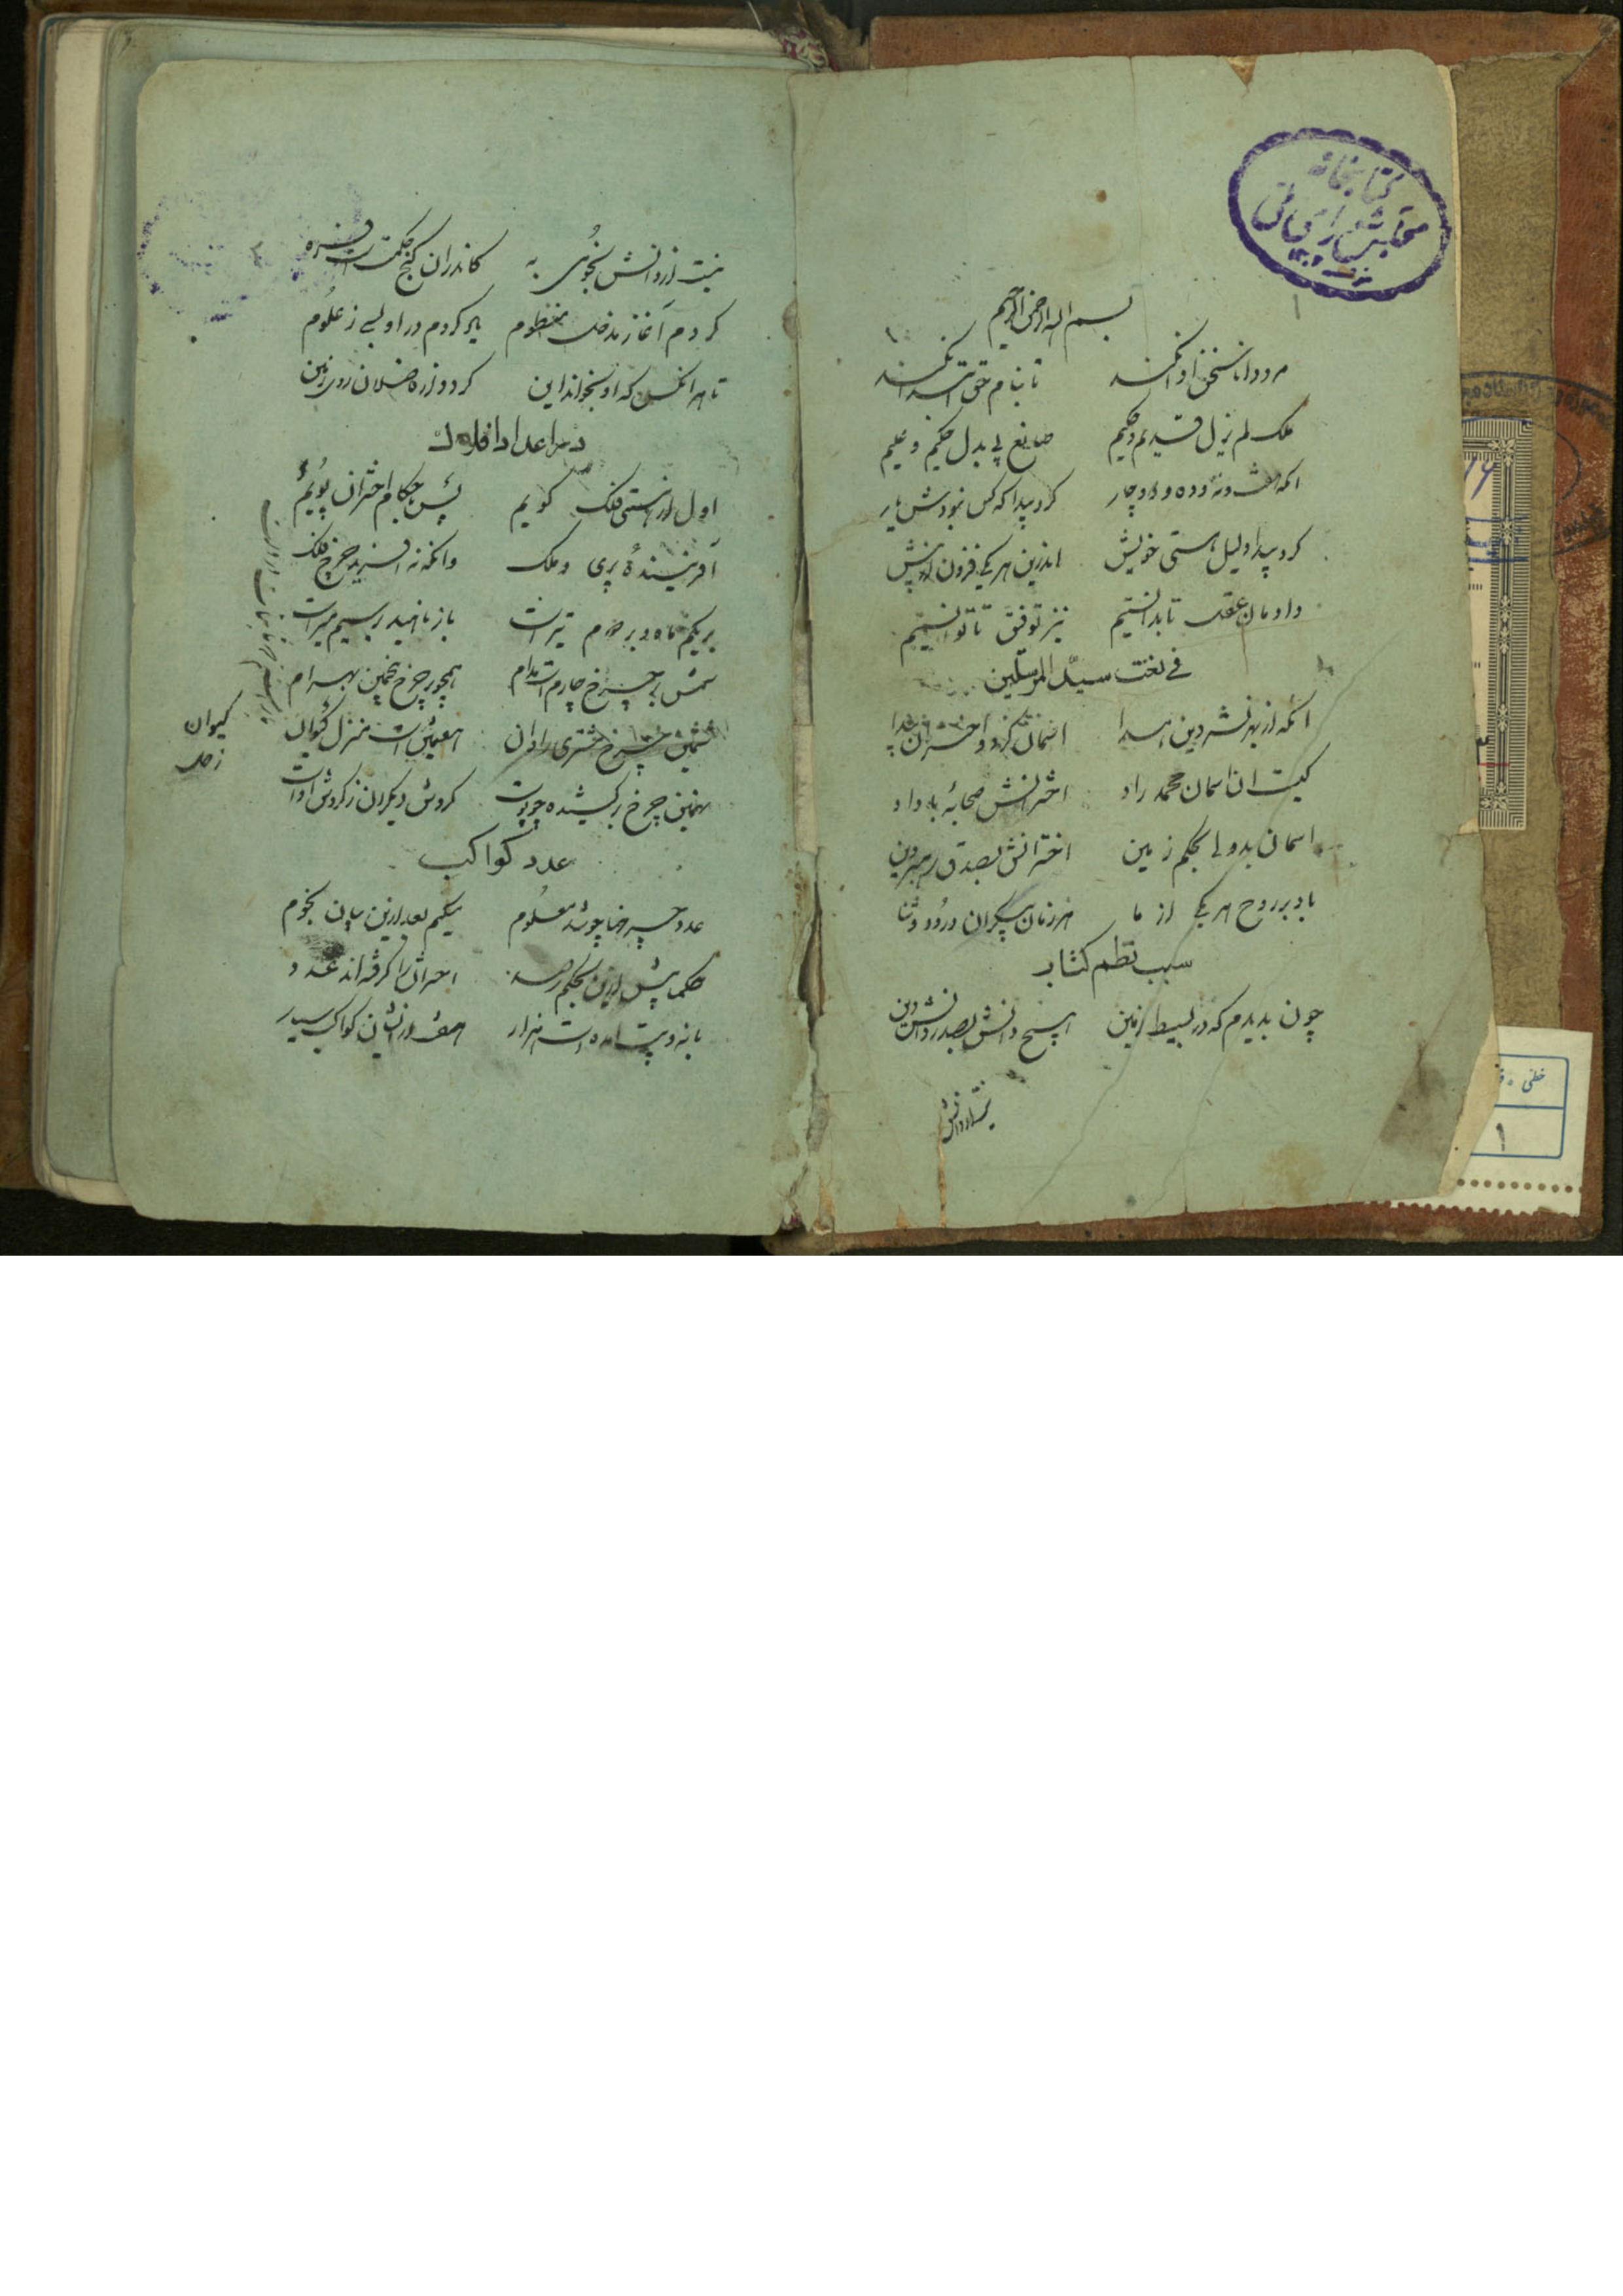 کتابخانه
مجلس شورای ملی
بسم الله الرحمن الرحیم
مرد دانا سخن ادا نکند تا بنام حق ابتدا نکند
ملک لم یزل قدیم و حکیم صانع بی بدل حکیم و علیم
انکه هفت و نه و ده و دو چار کرد پیدا که کس نبودش یار
کرد پیدا دلیل هستی خویش اندرین هر یکی فزون
دادمان عقل تا بدانستیم نیز توفیق تا توانستیم
فی نعت سید المرسلین
انکه از بهر شر دین اسمان کرد و اختران پیدا
کیست ان اسمان محمد راد اخترانش صحابهٔ با داد
اسمان بدو بحکم زمین اخترانش بصدق رهبر دین
باد بر روح هر یکی از ما هر زمان بیکران درود و ثنا
سبب نظم کتاب
چون بدیدم که در بسیط زمین هیچ دانش بصدر دانش دین
نیست از دانش نجومی به کاندران گنج حکمت است فره
کردم آغاز مدخل منظوم یاد کردم در او بسی ز علوم
تا هر انکس که او بخواند این گردد از فاضلان روی زمین
در اعداد افلاک
اول از هستی فلک گویم پس باحکام اختران پویم
آفرینندهٔ پری و ملک وانکه نه افرید چرخ فلک
بر یکم ماه و بر دوم تیر است باز ناهید بر سیم میر است
شمس بر چرخ چارم است مدام همچو بر چرخ پنجمین بهرام
ششمین چرخ مشتری را دان هفتمین است منزل کیوان
کیوان
زحل
نهمین چرخ برکشیده چو پوست گردش دیگران ز گردش اوست
عدد کواکب
عدد چرخها چو شد معلوم بیکیم بعد ازین بیان نجوم
حکما پیش ازین بحکم رصد اخترانرا گرفته اند عدد
با نه و بیست امده است هزار هفت ازیشان کواکب سیار
خطی
۱